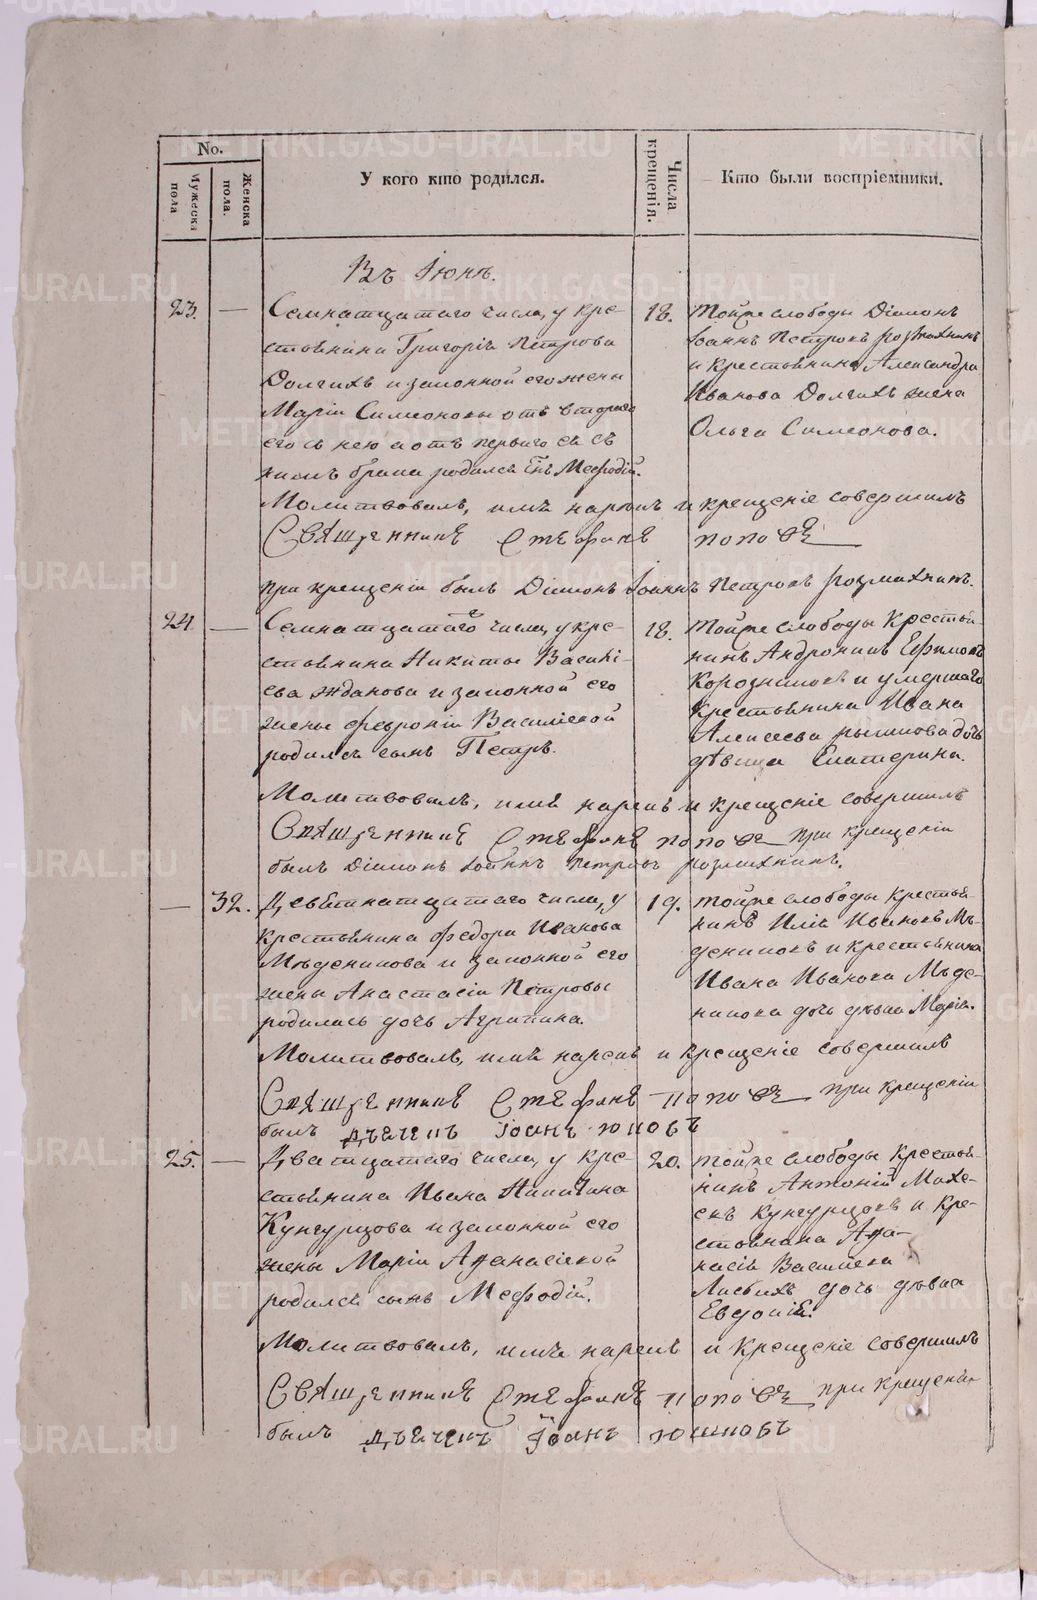 No.
Мужеска пола
Женска пола.
У кого кто родился.
Числа крещенія.
Кто были воспріемники.
Въ Іюнѣ.
23. — Семнатцатаго числа, у кре-
стьянина Григорія Петрова
Долгихъ и законной его жены
Маріи Симеоновы отъ втораго
его съ нею а отъ перваго ея съ
нимъ брака родился сынъ Меѳодій.
18. Тойже слободы Діаконъ
Іоаннъ Петровъ
и крестьянина Александра
Иванова Долгихъ жена
Ольга Симеонова.
Молитвовалъ, имя нарекъ и крещеніе совершилъ
Священникъ Стефанъ Поповъ
при крещеніи былъ Діаконъ Іоаннъ Петровъ
24. — Семнатцатаго числа, у кре-
стьянина Никиты Василі-
ева Жданова и законной его
жены Февроніи Василіевой
родился сынъ Петръ.
18. Тойже слободы Крестья-
нинъ Андроникъ Ефимовъ
и умершаго
Крестьянина Ивана
Алексеева дочь
дѣвица Екатерина.
Молитвовалъ, имя нарекъ и крещеніе совершилъ
Священникъ Стефанъ Поповъ при крещеніи
былъ Діаконъ Іоаннъ Петровъ
— 32. Девятнатцатаго числа, у
крестьянина Федора Иванова
Мѣденикова и законной его
жены Анастасіи Петровы
родилась дочь Агрипина.
19. Тойже слободы крестья-
нинъ Илія Ивановъ Мѣ-
дениковъ и крестьянина
Ивана Иванова Мѣде-
никова дочь дѣвка Марія.
Молитвовалъ, имя нарекъ и крещеніе совершилъ
Священникъ Стефанъ Поповъ при крещеніи
былъ дьячекъ Іоанъ Юшковъ
25. — Дватцатаго числа, у кре-
стьянина Ивана Никитина
Кунгурцова и законной его
жены Маріи Аѳанасіевой
родился сынъ Меѳодій.
20. Тойже слободы крестья-
нинъ Антоній
Кунгурцовъ и кре-
стьянина Аѳа-
насія Василіева
дочь дѣвка
Евдокія.
Молитвовалъ, имя нарекъ и Крещеніе совершилъ
Священникъ Стефанъ Поповъ при крещеніи
былъ дьячекъ Іоанъ Юшковъ
METRIKI.GASO-URAL.RU